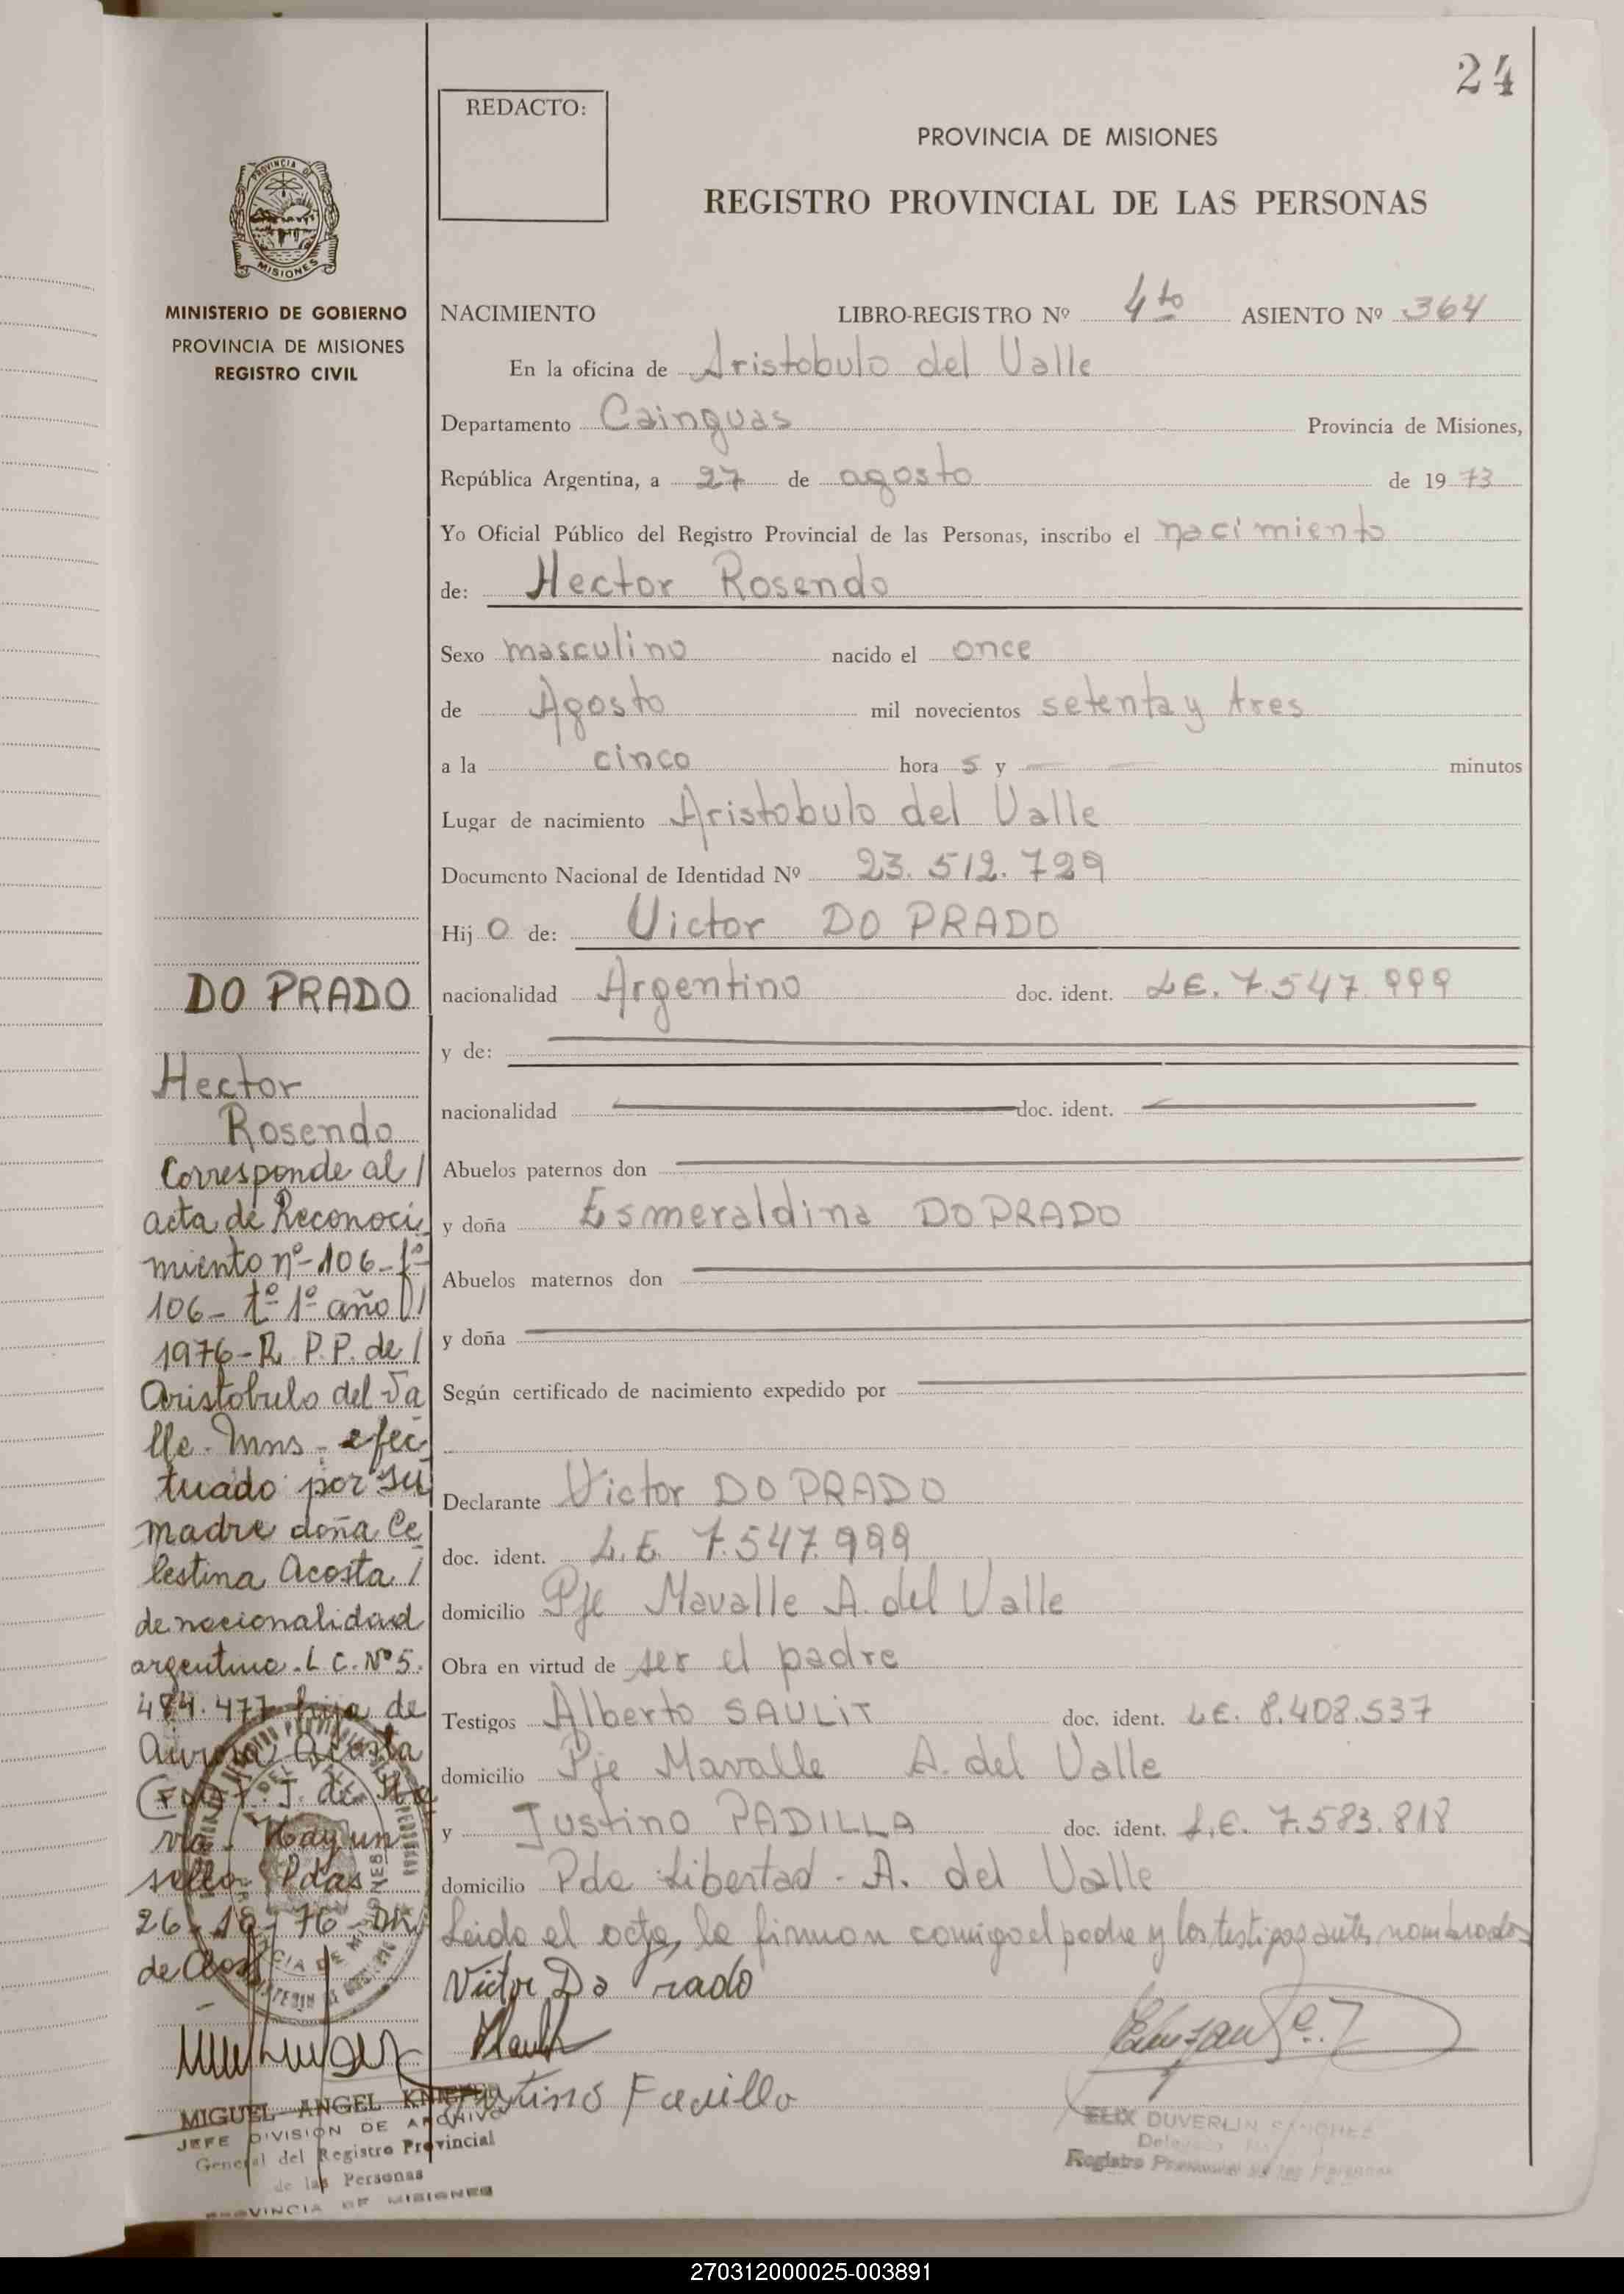 24
REDACTO:
PROVINCIA DE MISIONES
REGISTRO PROVINCIAL DE LAS PERSONAS
PROVINCIA DE
MISIONES
MINISTERIO DE GOBIERNO
PROVINCIA DE MISIONES
REGISTRO CIVIL
NACIMIENTO LIBRO-REGISTRO Nº 4to ASIENTO Nº 364
En la oficina de Aristobulo del Valle
Departamento Cainguas Provincia de Misiones,
República Argentina, a 27 de agosto de 1973
Yo Oficial Público del Registro Provincial de las Personas, inscribo el nacimiento
de: Hector Rosendo
Sexo masculino nacido el once
de Agosto mil novecientos setenta y tres
a la cinco hora 5 y — — minutos
Lugar de nacimiento Aristobulo del Valle
Documento Nacional de Identidad Nº 23.512.729
Hij o de: Victor DO PRADO
nacionalidad Argentino doc. ident. L.E. 7.547.999
y de:
nacionalidad doc. ident.
Abuelos paternos don
y doña Esmeraldina DO PRADO
Abuelos maternos don
y doña
Según certificado de nacimiento expedido por
Declarante Victor DO PRADO
doc. ident. L.E. 7.547.999
domicilio Pje Mavalle A. del Valle
Obra en virtud de ser el padre
Testigos Alberto SAULIT doc. ident. L.E. 8.408.537
domicilio Pje Mavalle A. del Valle
y Justino PADILLA doc. ident. L.E. 7.583.818
domicilio Pda Libertad - A. del Valle
Leida el acta, la firman comigo el padre y los testigos antes nombrados
Victor Do rado
DO PRADO
Hector
Rosendo
Corresponde al /
acta de Reconoci
miento nº 106 - fº
106 - tº 1º año
1976 - R. P.P. de /
Aristobulo del Va
lle - Mns - efec
tuado por su
madre doña Ce
lestina Acosta /
de nacionalidad
argentina - L.C. Nº 5.
484.477 hija de
Aurora Acosta
Hay un
sello Pdas
26 - 76
MIGUEL ANGEL
JEFE DIVISION DE ARCHIVO
General del Registro Provincial
de las Personas
PROVINCIA DE MISIONES
DUVERLIN SANCHEZ
Registro Provincial de las Personas
270312000025-003891